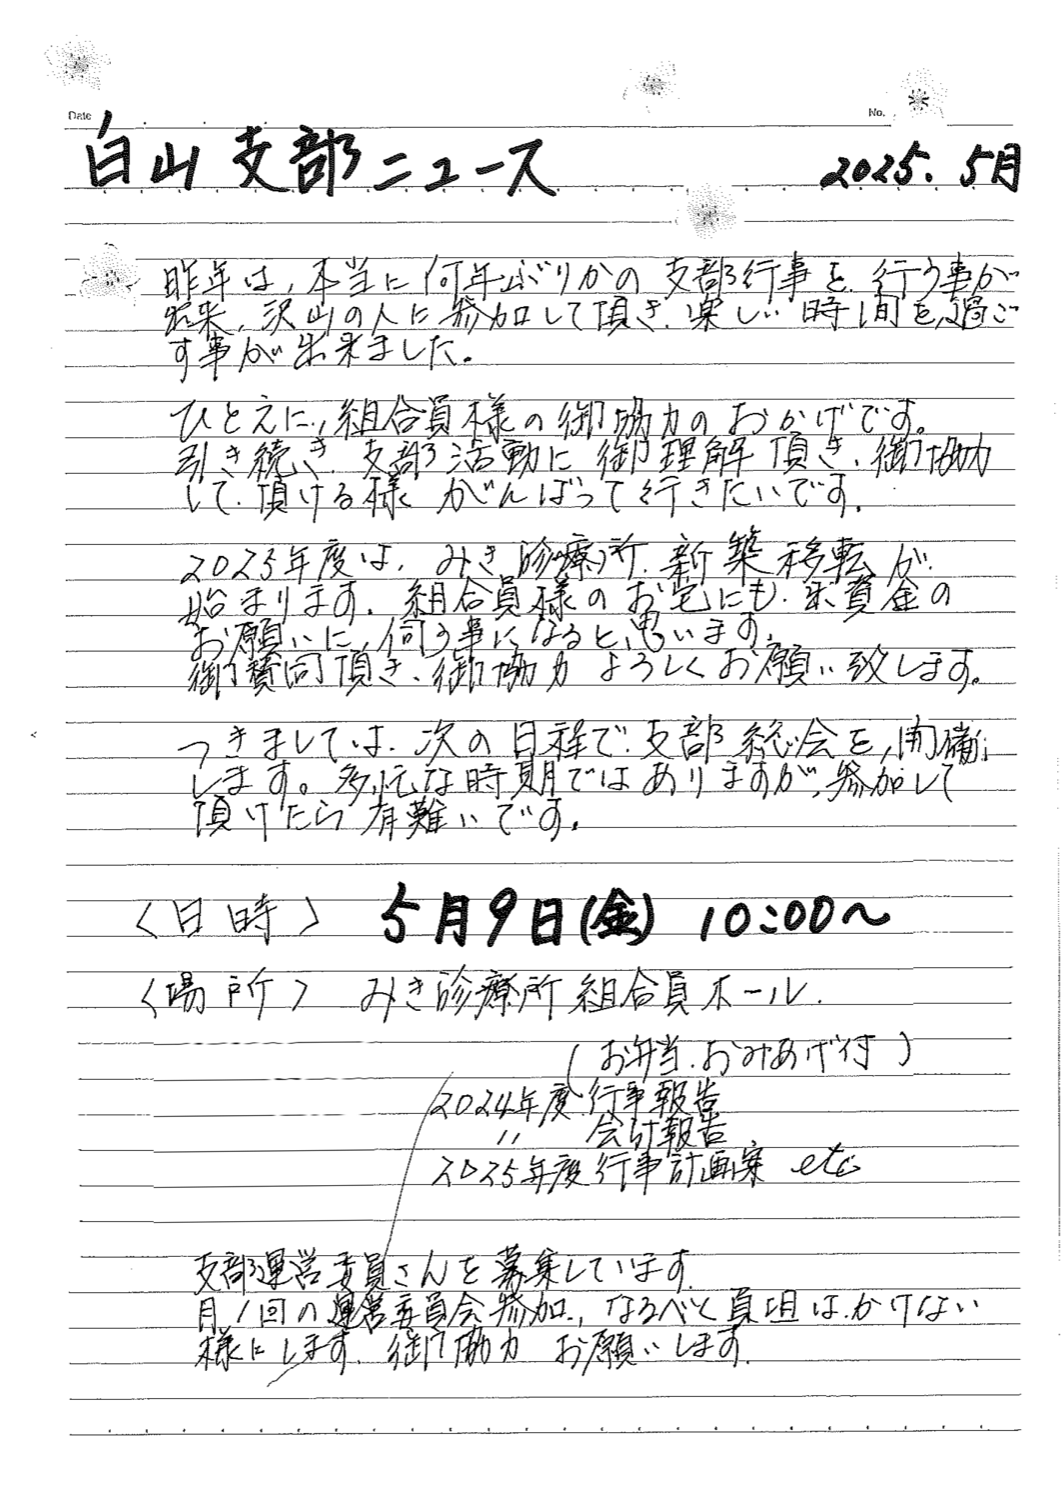 Date
No.
白山支部ニュース 2025.5月
昨年は、本当に何年ぶりかの支部行事を行う事が
出来、沢山の人に参加して頂き、楽しい時間を過ご
す事が出来ました。
ひとえに、組合員様の御協力のおかげです。
引き続き、支部活動に御理解頂き、御協力
して頂ける様がんばって行きたいです。
2025年度は、みき診療所、新築移転が
始まります。組合員様のお宅にも、出資金の
お願いに、伺う事になると思います。
御賛同頂き、御協力よろしくお願い致します。
つきましては、次の日程で、支部総会を、開催
します。多忙な時期ではありますが、参加して
頂けたら有難いです。
〈日時〉 5月9日(金) 10:00〜
〈場所〉 みき診療所組合員ホール.
(お弁当、おみあげ付)
2024年度 行事報告
〃 会計報告
2025年度 行事計画案 etc
支部運営委員さんを募集しています。
月1回の運営委員会参加、なるべく負担はかけない
様にします。御協力お願いします。